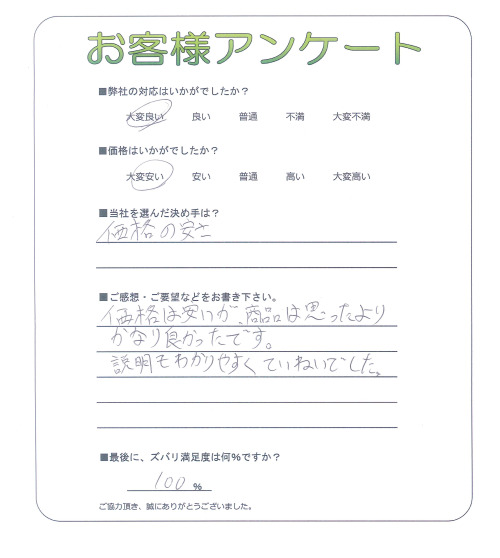 お客様アンケート
■弊社の対応はいかがでしたか？
大変良い 良い 普通 不満 大変不満
■価格はいかがでしたか？
大変安い 安い 普通 高い 大変高い
■当社を選んだ決め手は？
価格の安さ
■ご感想・ご要望などをお書き下さい。
価格は安いが、商品は思ったより
かなり良かったです。
説明もわかりやすくていねいでした。
■最後に、ズバリ満足度は何％ですか？
100 %
ご協力頂き、誠にありがとうございました。